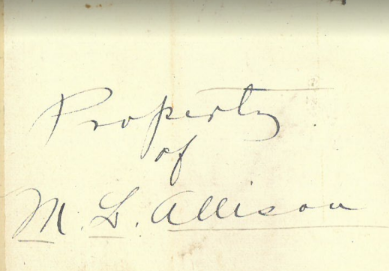 Property
of
M. L. Allison